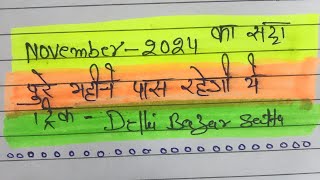 November-2024 का सट्टा
पुरे महीने पास रहेगी ये
ट्रिक - Delhi Bazar Satta